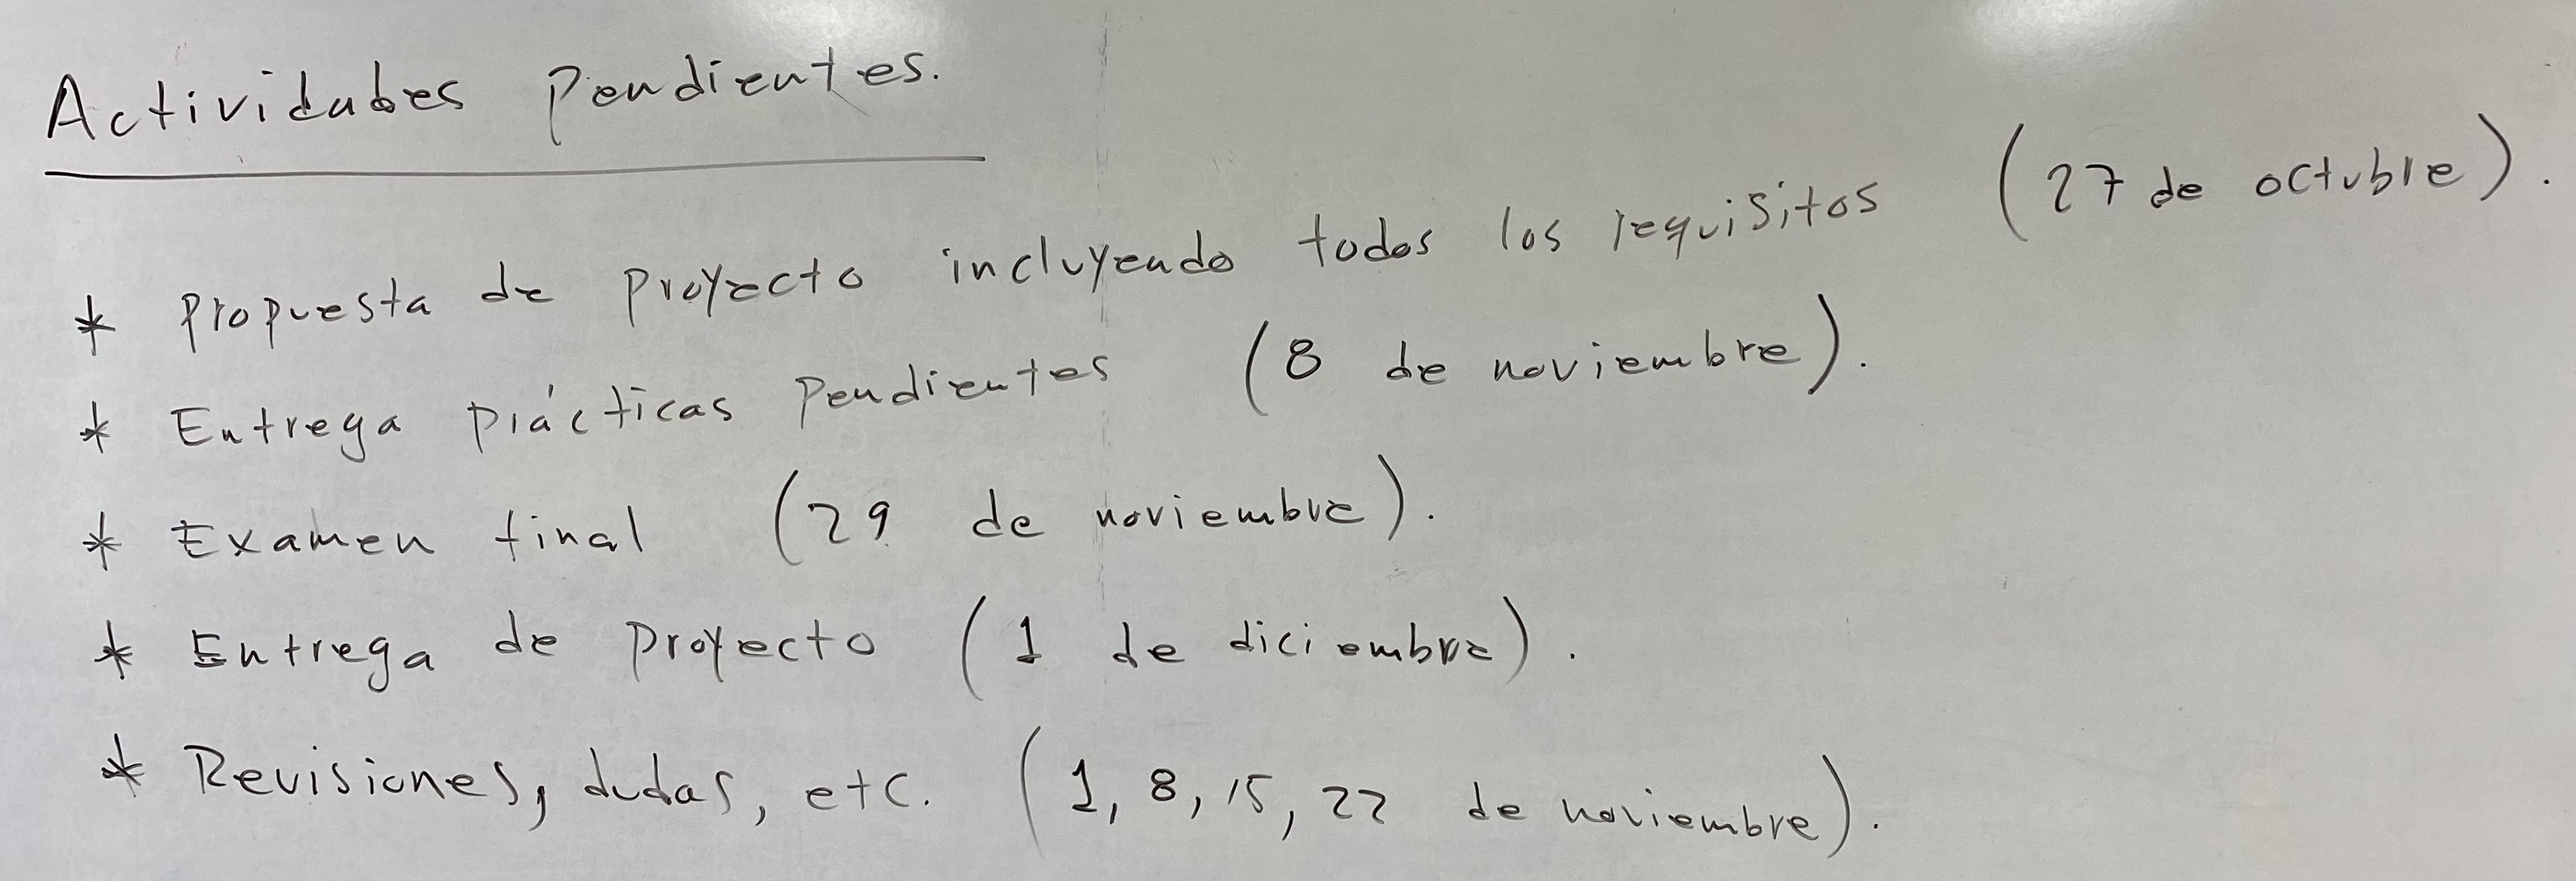 Actividades Pendientes.
* Propuesta de Proyecto incluyendo todos los requisitos (27 de octubre).
* Entrega Prácticas Pendientes (8 de noviembre).
* Examen final (29 de noviembre).
* Entrega de Proyecto (1 de diciembre).
* Revisiones, dudas, etc. (1, 8, 15, 22 de noviembre).